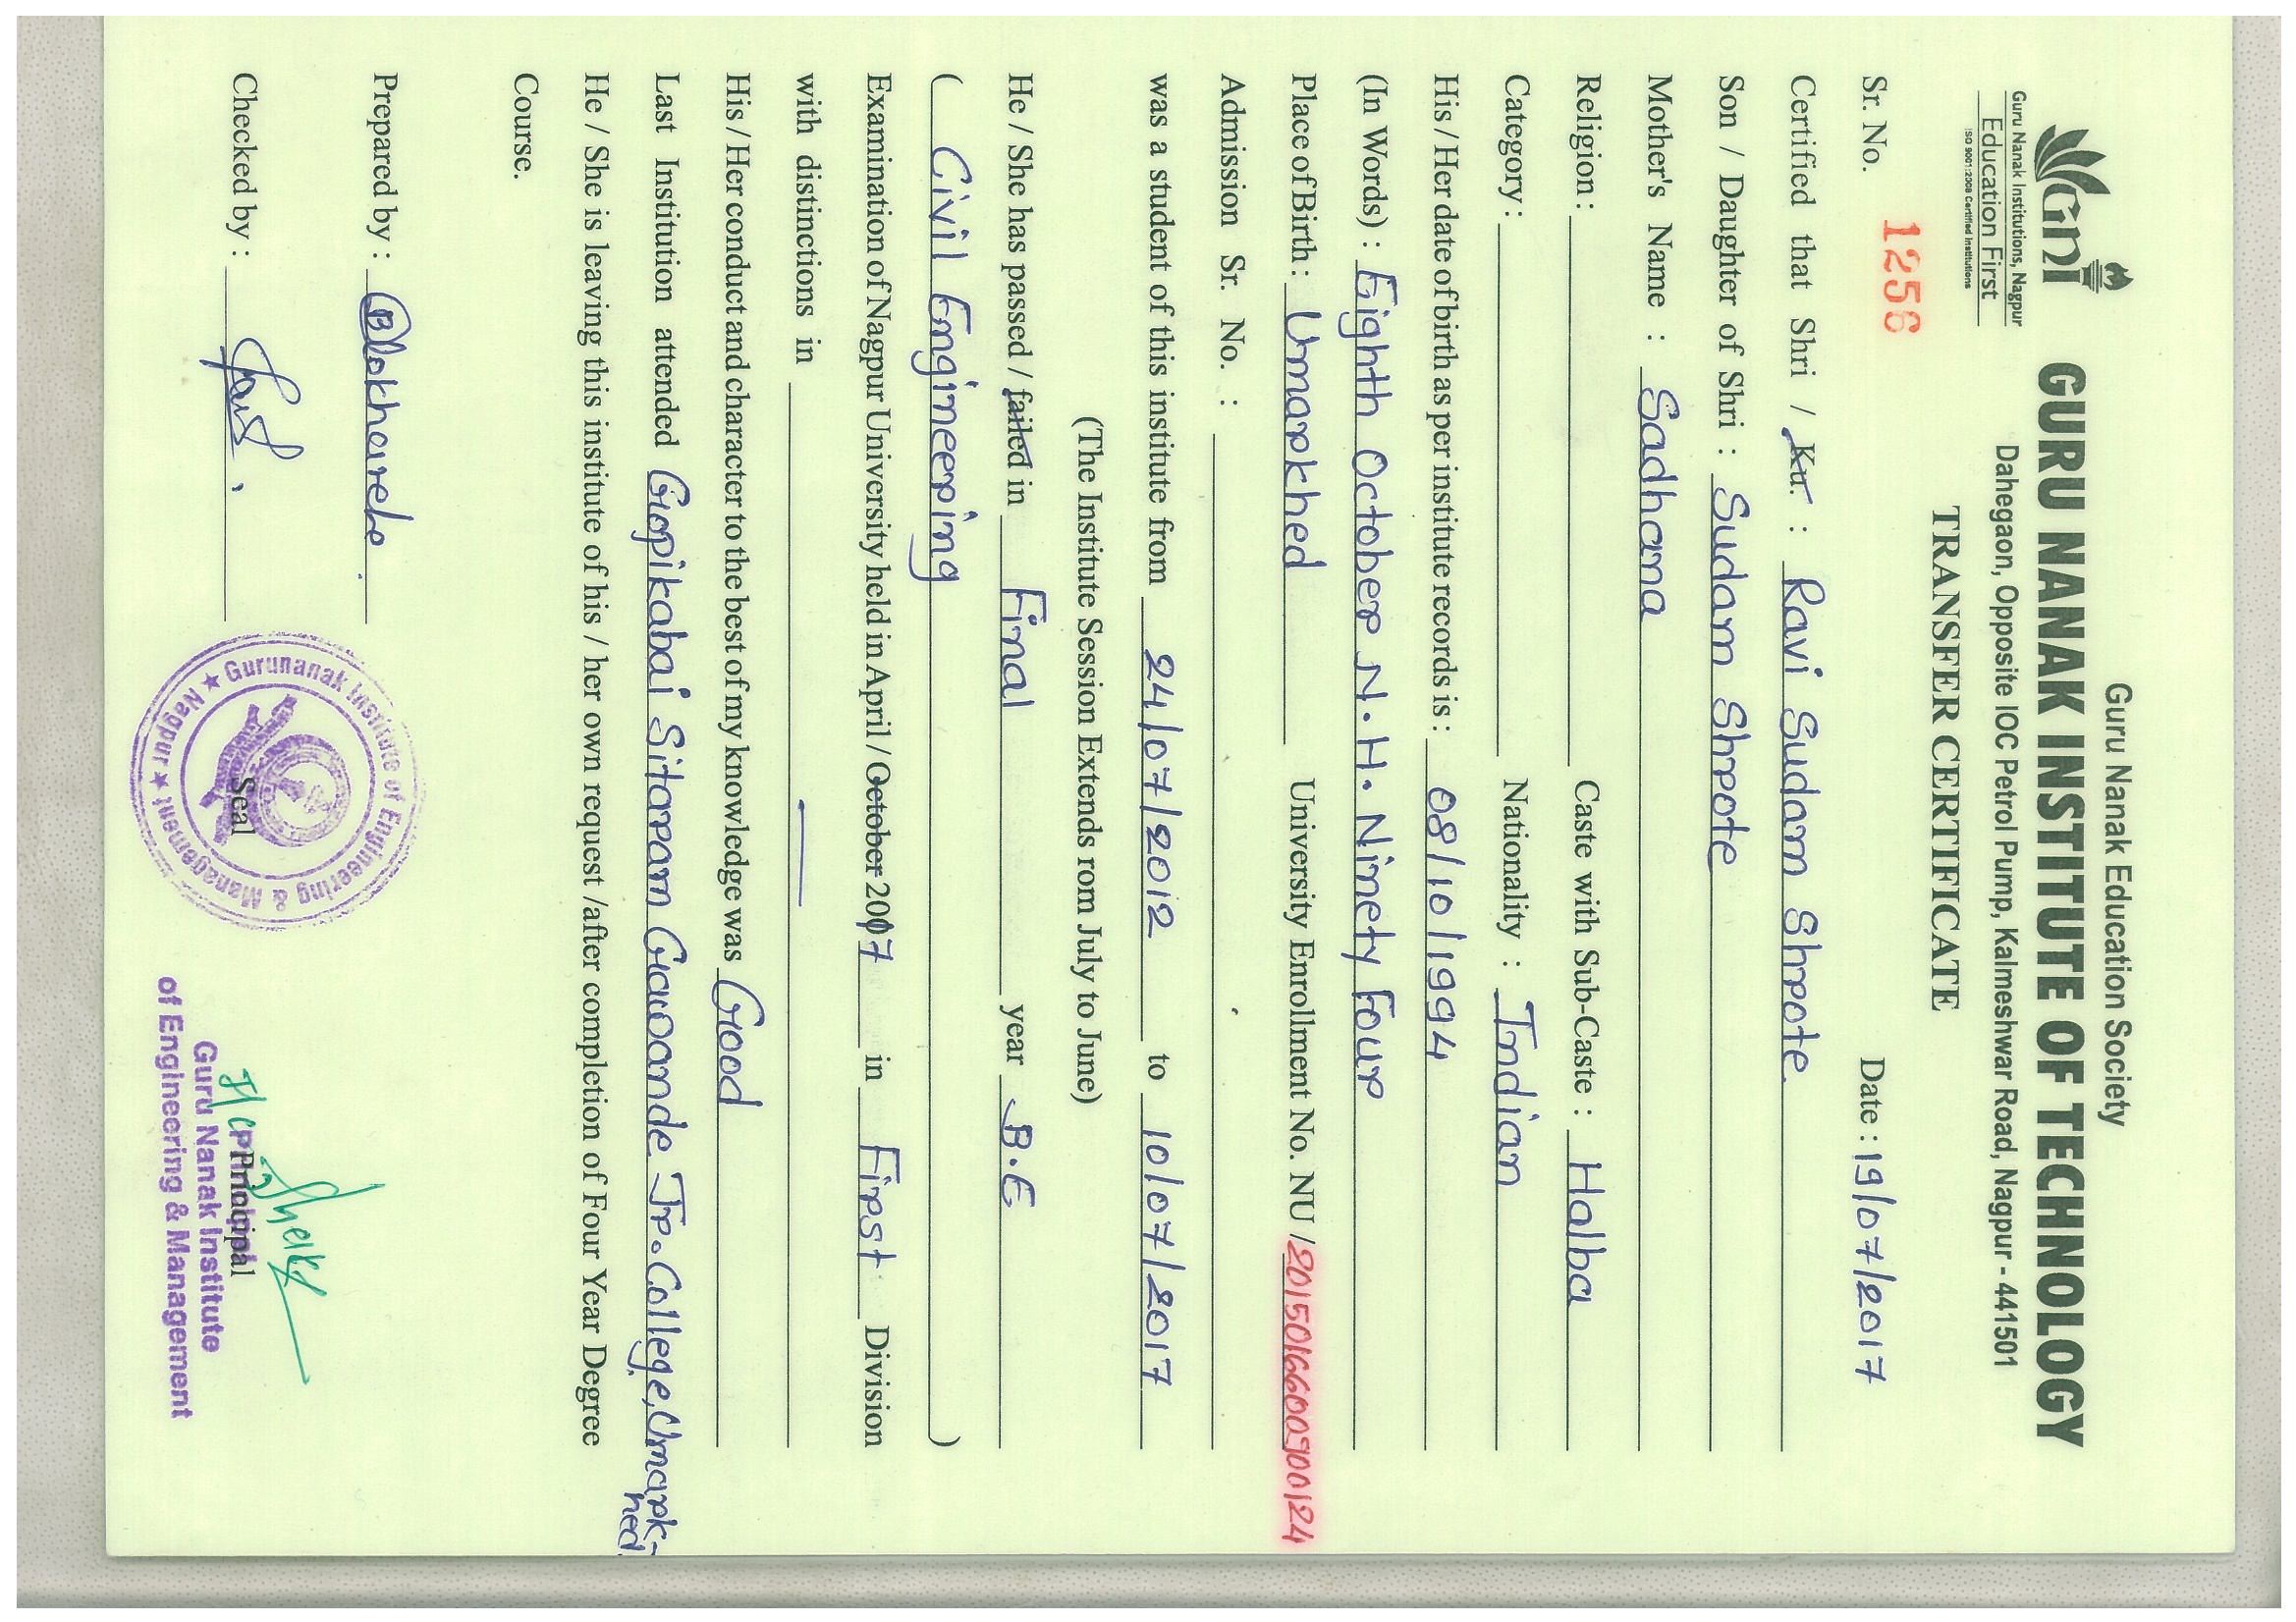 GNI
Guru Nanak Institutions, Nagpur
Education First
ISO 9001:2008 Certified Institutions
Guru Nanak Education Society
GURU NANAK INSTITUTE OF TECHNOLOGY
Dahegaon, Opposite IOC Petrol Pump, Kalmeshwar Road, Nagpur - 441501
TRANSFER CERTIFICATE
Sr. No. 1256 Date : 19/07/2017
Certified that Shri / Ku. : Ravi Sudam Shrote
Son / Daughter of Shri : Sudam Shrote
Mother's Name : Sadhana
Religion : Caste with Sub-Caste : Halba
Category : Nationality : Indian
His / Her date of birth as per institute records is : 08/10/1994
(In Words) : Eighth October N.H. Ninety Four
Place of Birth : Umarkhed University Enrollment No. NU /2015016600900124
Admission Sr. No. :
was a student of this institute from 24/07/2012 to 10/07/2017
(The Institute Session Extends rom July to June)
He / She has passed / failed in Final year B.E
( Civil Engineering )
Examination of Nagpur University held in April / October 2017 in First Division
with distinctions in —
His / Her conduct and character to the best of my knowledge was Good
Last Institution attended Gopikabai Sitaram Gawande Jr. College, Umark-
hed.
He / She is leaving this institute of his / her own request /after completion of Four Year Degree
Course.
Prepared by :
Checked by :
Gurunanak Institute of Engineering & Management ★ Nagpur ★
Seal
I/C Principal
Principal
Guru Nanak Institute
of Engineering & Management